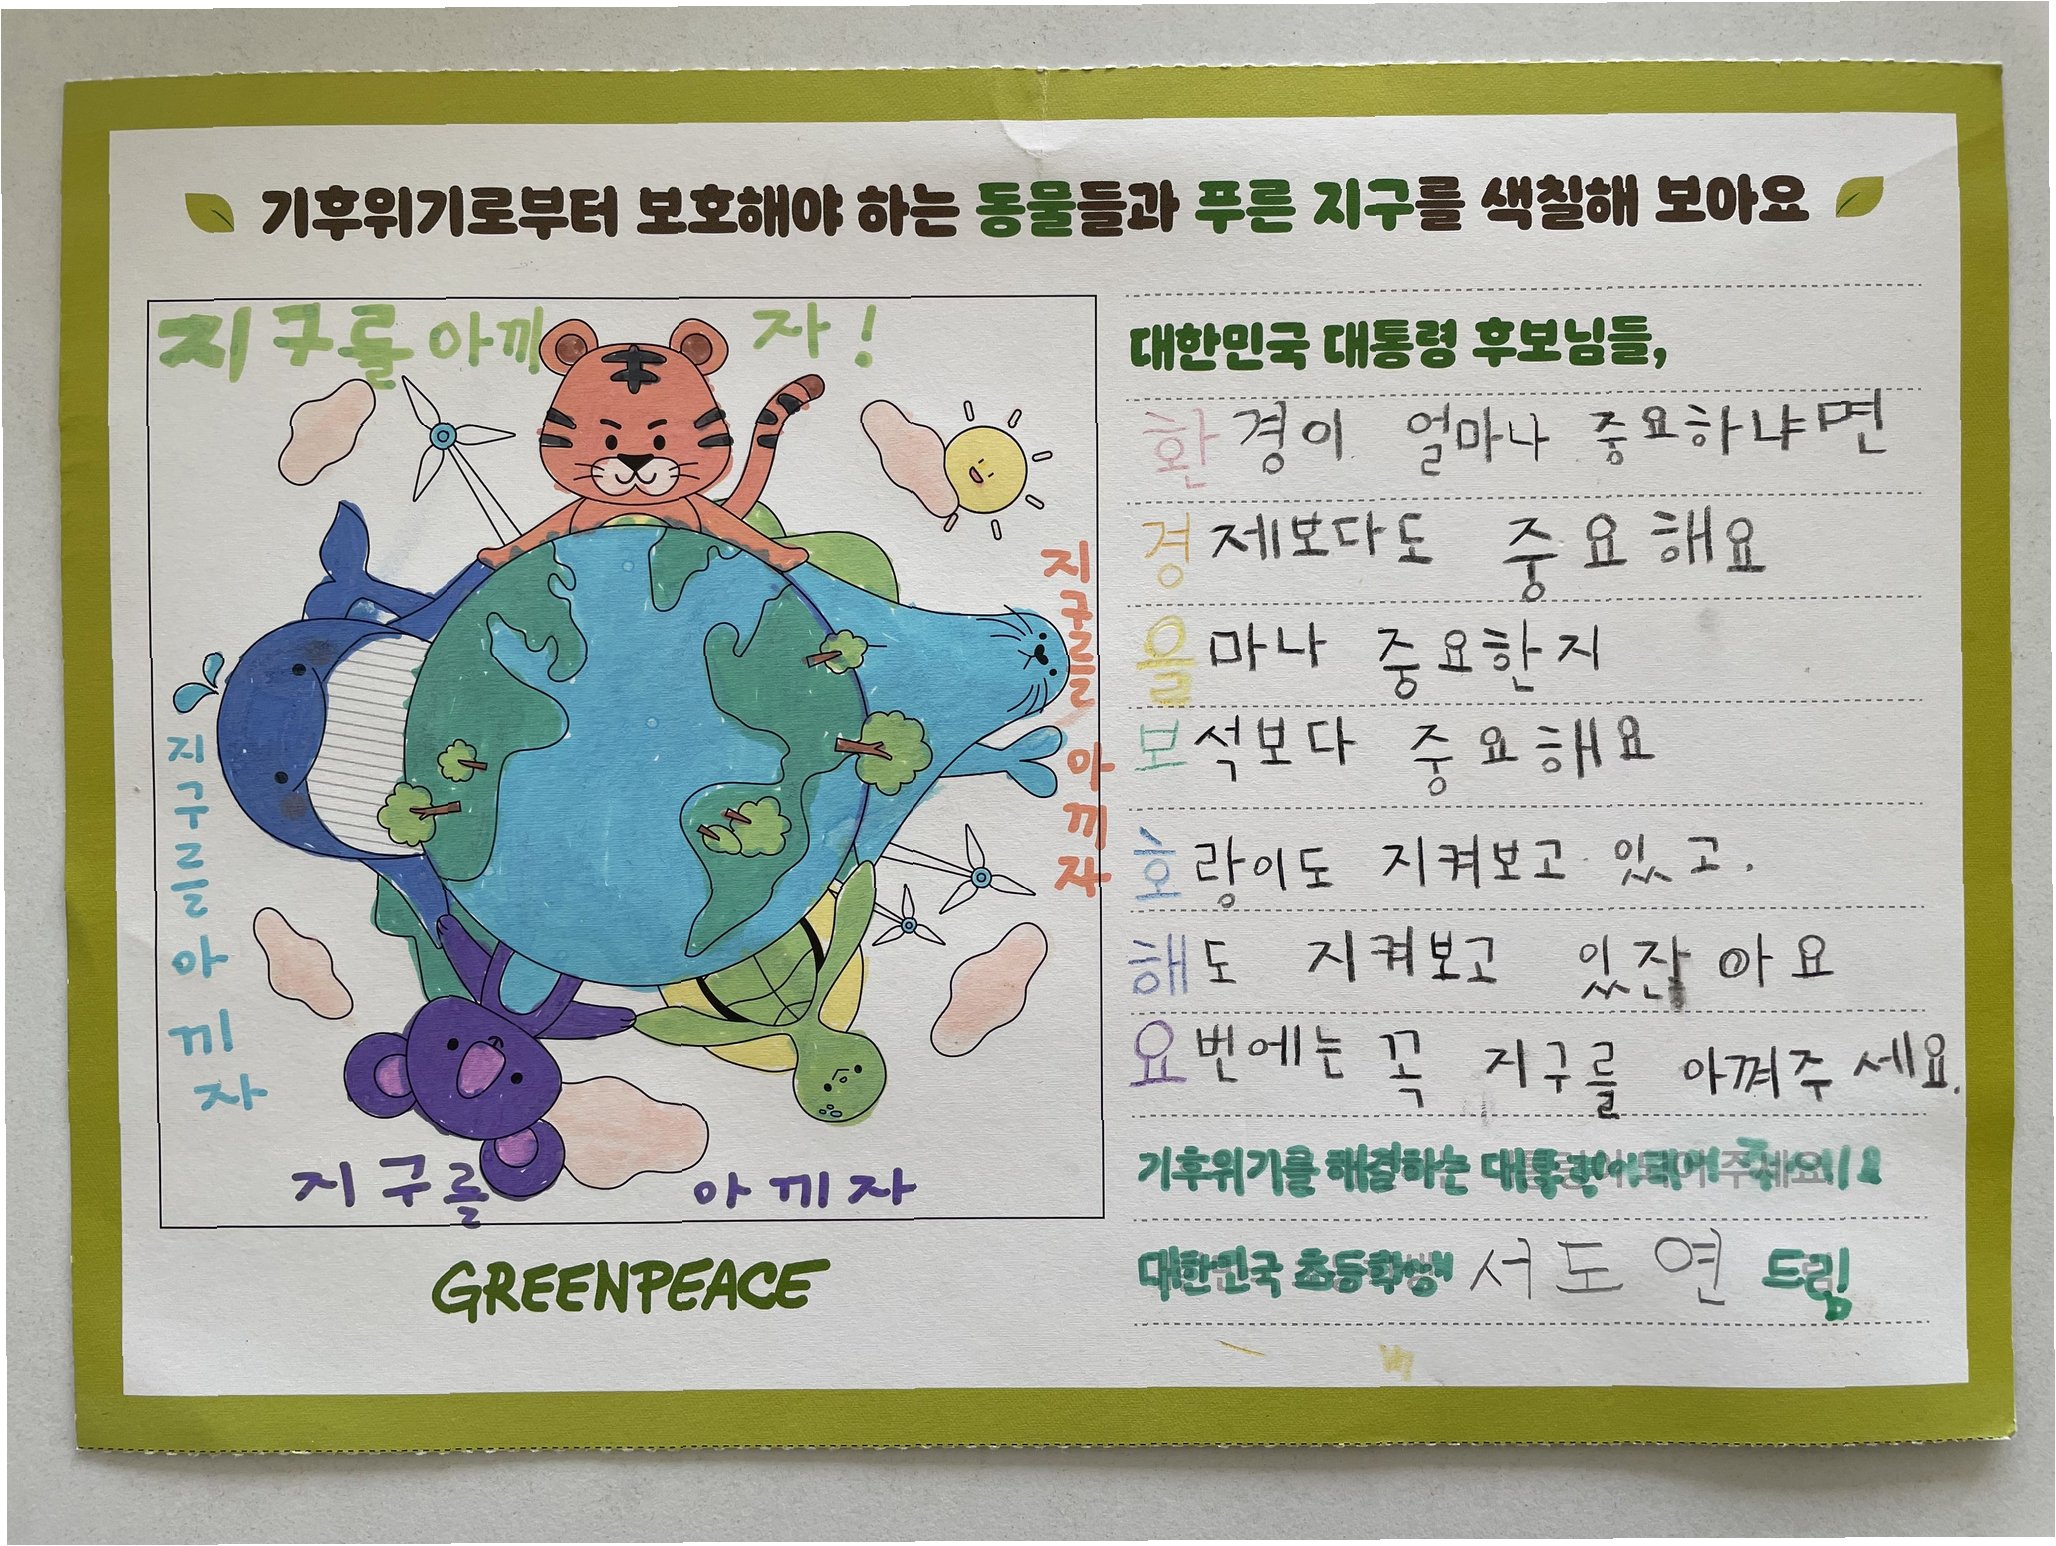 기후위기로부터 보호해야 하는 동물들과 푸른 지구를 색칠해 보아요
지구를 아끼자!
지구를 아끼자
지구를 아끼자
지구를 아끼자
GREENPEACE
대한민국 대통령 후보님들,
환경이 얼마나 중요하냐면
경제보다도 중요해요
을마나 중요한지
보석보다 중요해요
호랑이도 지켜보고 있고.
해도 지켜보고 있잖아요
요번에는 꼭 지구를 아껴주세요.
기후위기를 해결하는 대통령이 되어 주세요!
대한민국 초등학생 서도연 드림